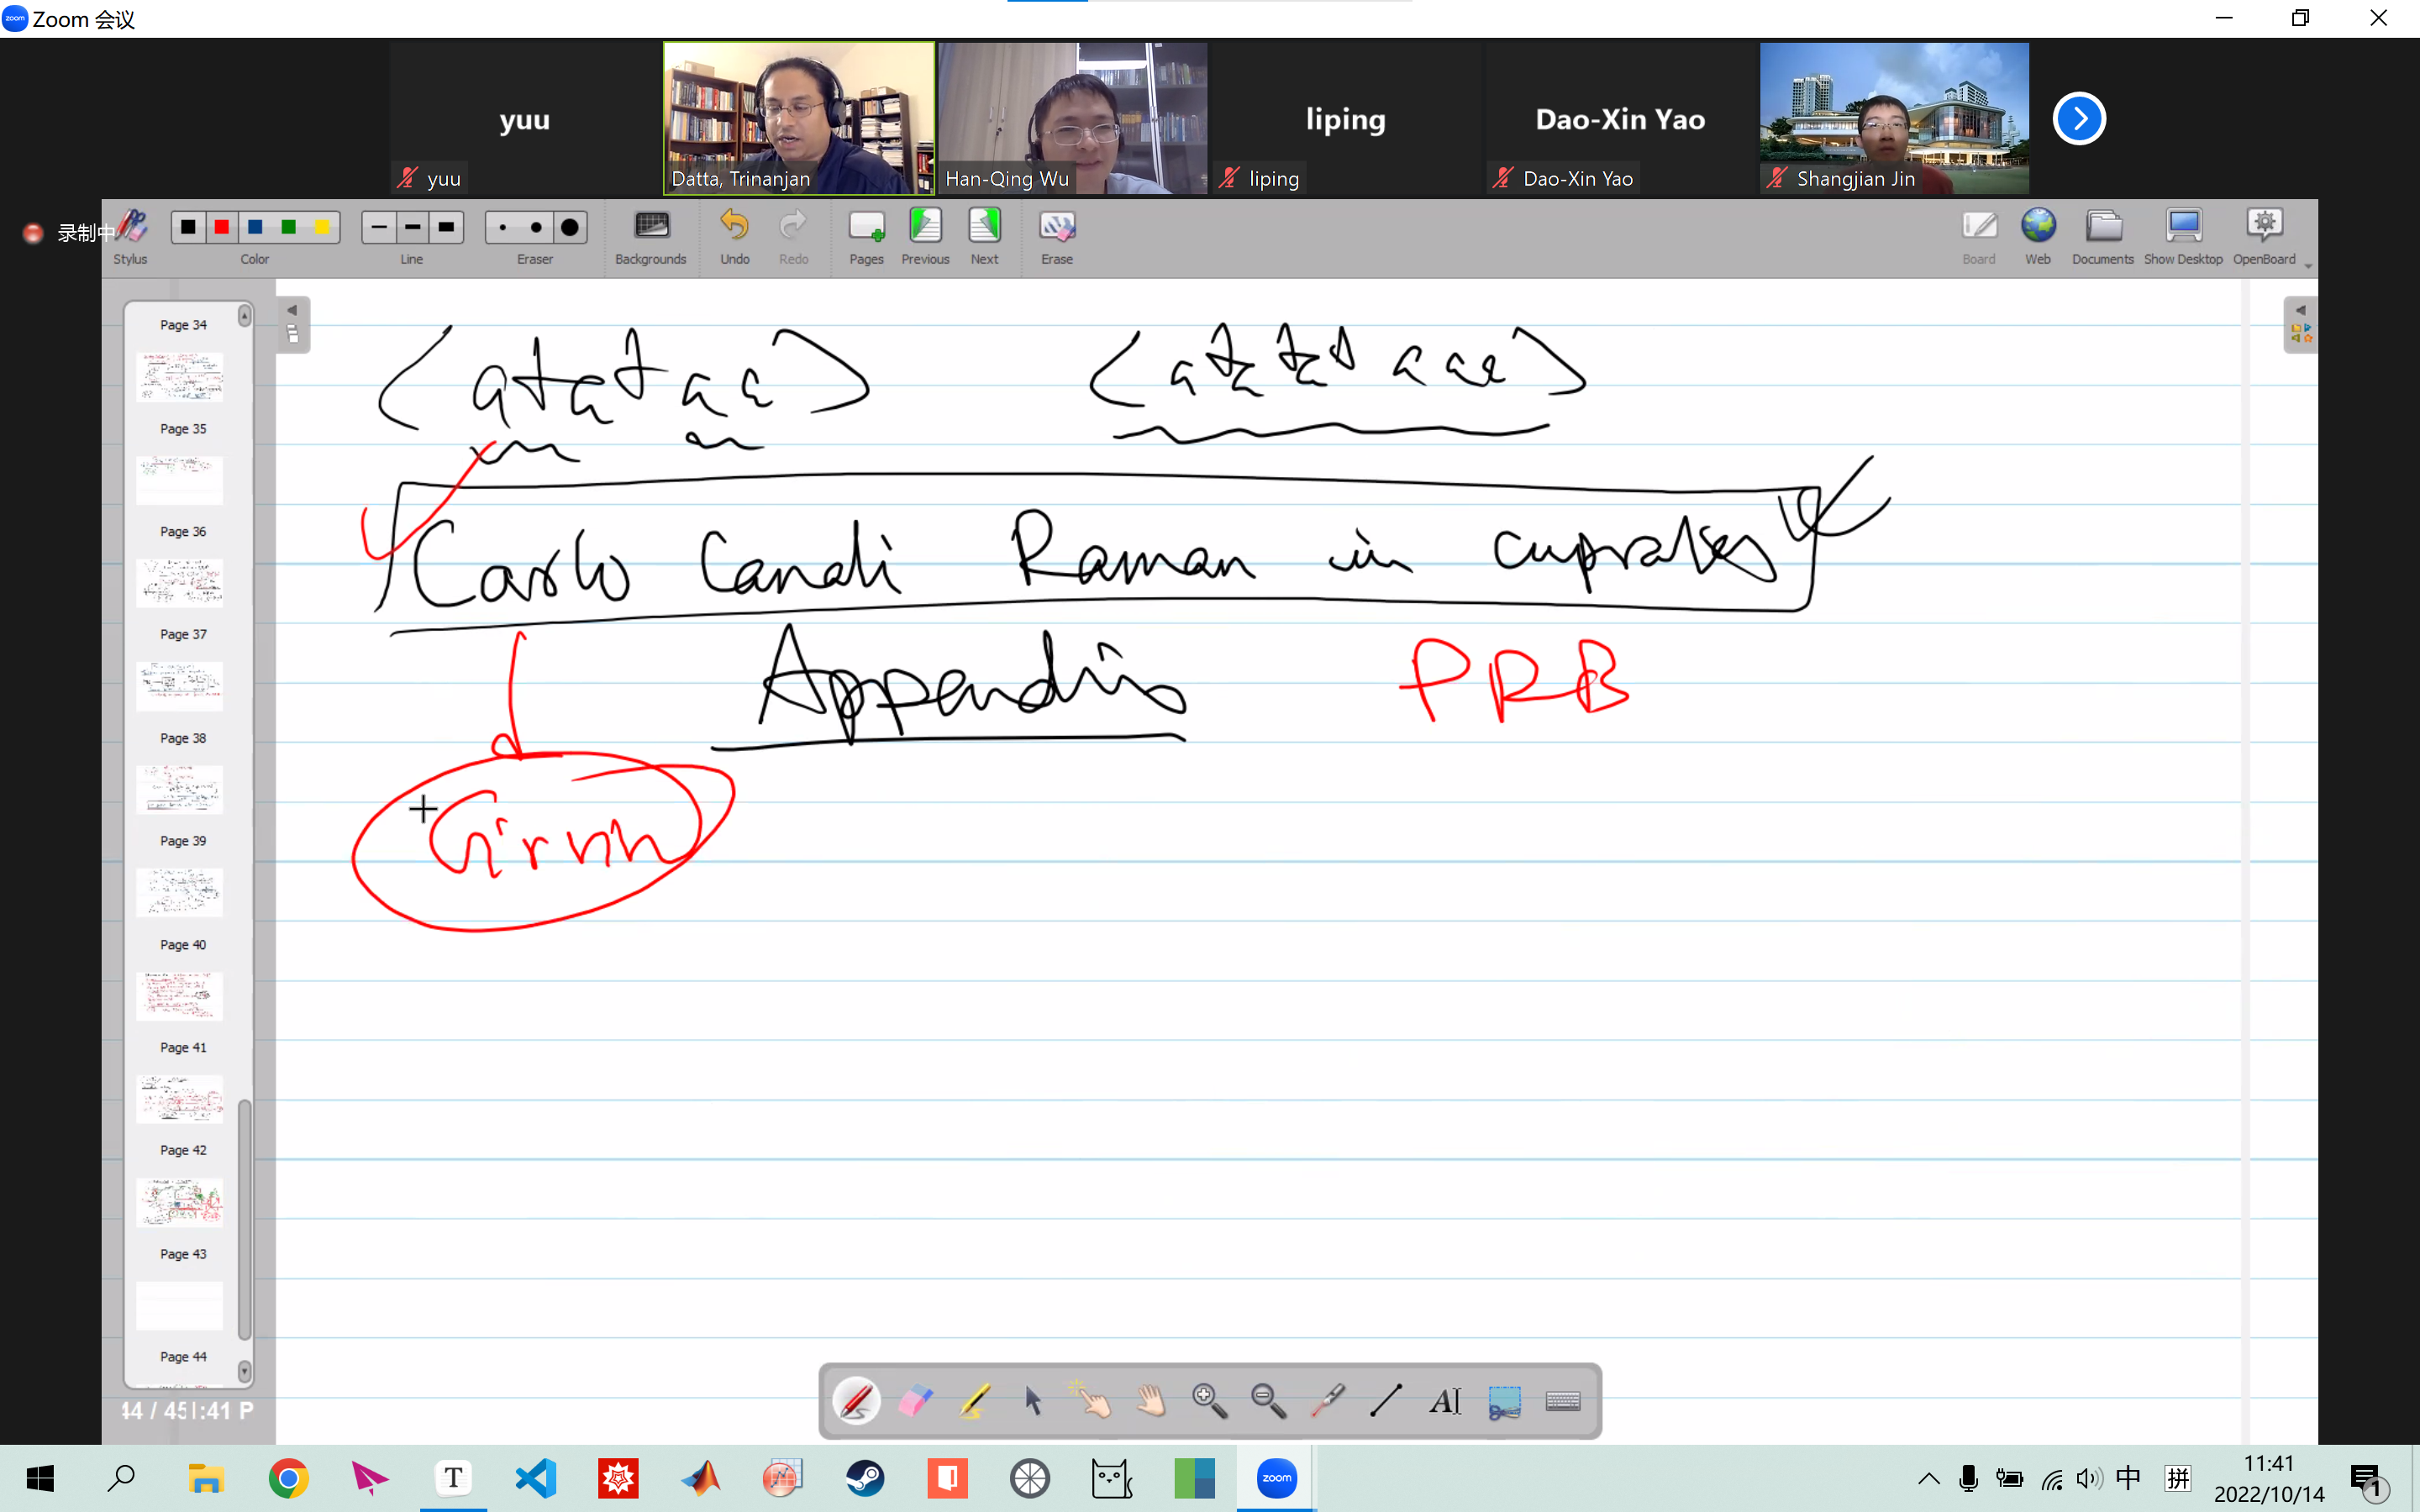 Zoom 会议
yuu
liping
Dao-Xin Yao
yuu
Datta, Trinanjan
Han-Qing Wu
liping
Dao-Xin Yao
Shangjian Jin
录制中
Stylus
Color
Line
Eraser
Backgrounds
Undo
Redo
Pages
Previous
Next
Erase
Board
Web
Documents
Show Desktop
OpenBoard
Page 34
Page 35
Page 36
Page 37
Page 38
Page 39
Page 40
Page 41
Page 42
Page 43
Page 44
⟨a†a†aa⟩ ⟨a†a†a†aaa⟩
Carlo Canali Raman in cuprates
Appendix PRB
Girvin
zoom
中
拼
11:41
2022/10/14
1